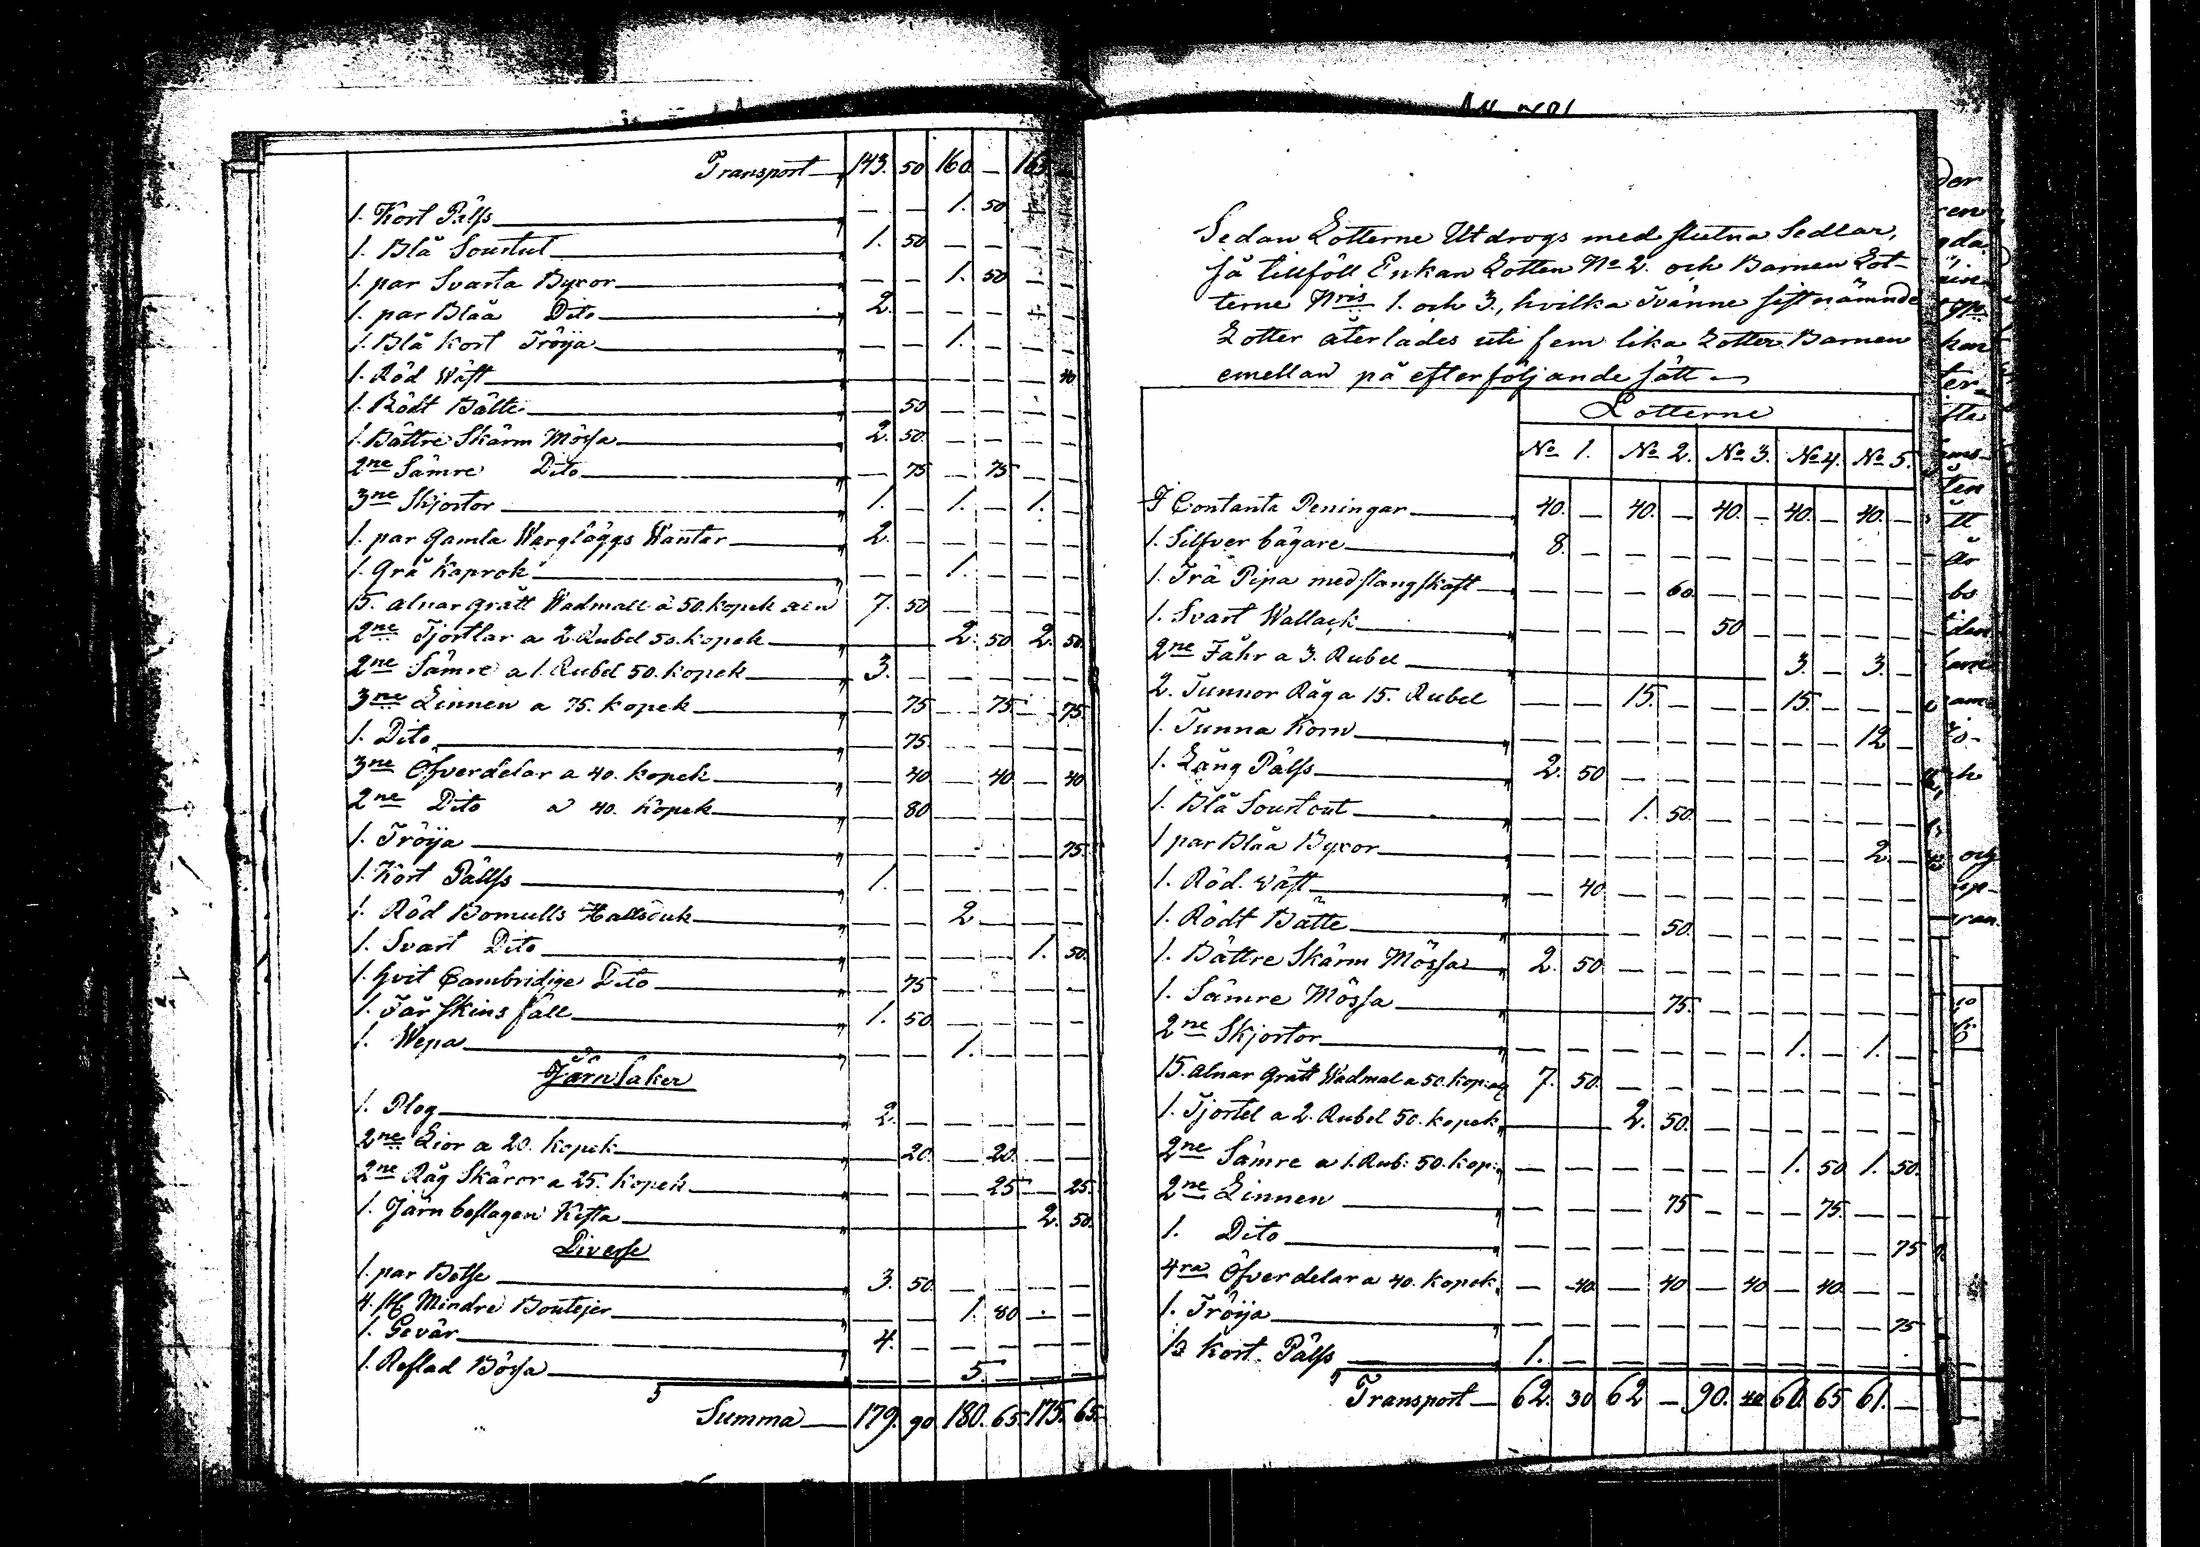 Transport 143. 50 160 — 163
1. Kort Pälss — — 1. 50 — —
1. Blå Sourtut 1. 50 — — — —
1. par Svarta Byxor — — 1. 50 — —
1. par Blåa Dito 2. — — — — —
1. Blå Kort Tröija — — 1. — — —
1. Röd Wäst — 40
1. Rödt Bälte — 50 — — — —
1. Bättre Skärm Mössa 2. 50. — — — —
2ne Sämre Dito — 75 — 75 — —
3ne Skjortor 1. — 1. — 1. —
1. par gamla Warglåggs Wantar 2. — — — — —
1. Grå Kaprok — — 1. — — —
15. alnar grått Wadmall a 50. kopek aln 7. 50 — — — —
2ne Tjortlar a 2. Rubel 50. kopek 2. 50 2. 50.
2ne Sämre a 1. Rubel 50. kopek 3. — — — — —
3ne Linnen a 75. kopek — 75 — 75 — 75.
1. Dito — 75 — — — —
3ne Öfverdelar a 40. kopek — 40 — 40 — 40
2ne Dito a 40. kopek — 80 — — — —
1. Tröija — — — — — 75.
1. Kort Pällss 1. — — — — —
1. Röd Bomulls Hallsduk — — 2 — — —
1. Svart Dito — — — — 1. 50.
1. hvit Cambridige Dito — 75 — — — —
1. Fårskins fäll 1. 50 — — — —
1. Wepa — — 1. — — —
Järnsaker
1. Plog 2. — — — — —
2ne Lior a 20. kopek — 20. — 20. — —
2ne Råg Skäror a 25. kopek — — — 25 — 25.
1. Järn beslagen Kista 2. 50.
Diverse
1. par Botse 3. 50. — — — —
4. st Mindre Boutejer — — 1. 80 — —
1. Gevär 4. — — — — —
1. Reflad Bössa — — 5. — — —
Summa 179. 90 180. 65 175. 65.
Sedan Lotterne Utdrogs med slutna Sedlar,
så tillföll Enkan Lotten No 2. och Barnen Lot-
terne Nris 1. och 3., hvilka tvänne sistnämnde
Lotter återlades uti fem lika Lotter Barnen
emellan på efterföljande sätt
Lotterne
No 1. No 2. No 3. No 4. No 5.
I Contanta Peningar 40. — 40. — 40. — 40. — 40. —
1. Silfver bägare 8. — — — — — — — — —
1. Trä Pipa med slangskaft — — — 60. — — — — — —
1. Svart Wallack — — — — 50 — — — — —
2ne Fåhr a 3. Rubel 3. — 3. —
2. Tunnor Råg a 15. Rubel — — 15. — — — 15. — — —
1. Tunna Korn — — — — — — — — 12 —
1. Lång Pälss 2. 50 — — — — — — — —
1. Blå Sourtout — — 1. 50. — — — — — —
1 par Blåa Byxor — — — — — — — — 2. —
1. Röd. Wäst — 40 — — — — — — — —
1. Rödt Bälte — 50. — — — — — —
1. Bättre Skärm Mössa 2. 50 — — — — — — — —
1. Sämre Mössa — 75. — — — — — —
2ne Skjortor — — — — — — 1. — 1. —
15. alnar grått Wadmal a 50. kop: aln 7. 50. — — — — — — — —
1. Tjortel a 2. Rubel 50. kopek 2. 50. — — — — — —
2ne Sämre a 1. Rub: 50. kop: — — — — — — 1. 50 1. 50.
2ne Linnen — — — 75 — — — 75. — —
1. Dito — — — — — — — — — 75
4ra Öfverdelar a 40. kopek — 40 — 40 — 40 — 40. — —
1. Tröija — — — — — — — — — 75
1. Kort. Pälss 1. — — — — — — — — —
Transport 62. 30 62 — 90. 40 60. 65 61. —